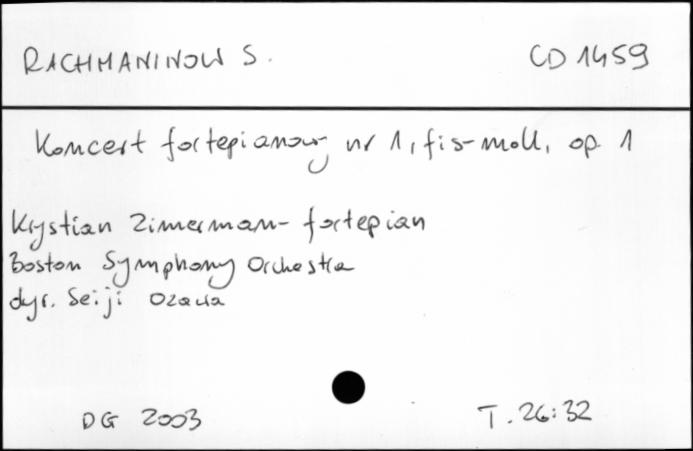 RACHMANINOW S. CD 1459
Koncert fortepianowy nr 1, fis-moll, op. 1
Krystian Zimerman- fortepian
Boston Symphony Orchestra
dyr. Seiji Ozawa
DG 2003 T. 26:32